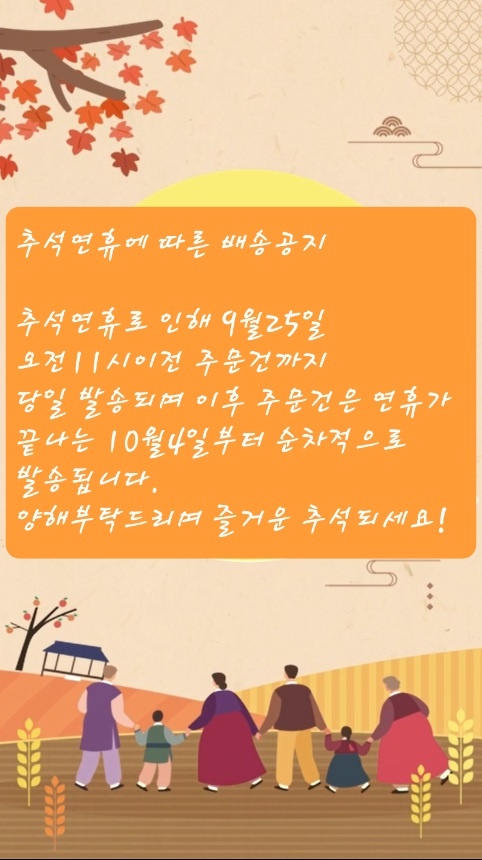 추석연휴에 따른 배송공지
추석연휴로 인해 9월25일
오전11시이전 주문건까지
당일 발송되며 이후 주문건은 연휴가
끝나는 10월4일부터 순차적으로
발송됩니다.
양해부탁드리며 즐거운 추석되세요!